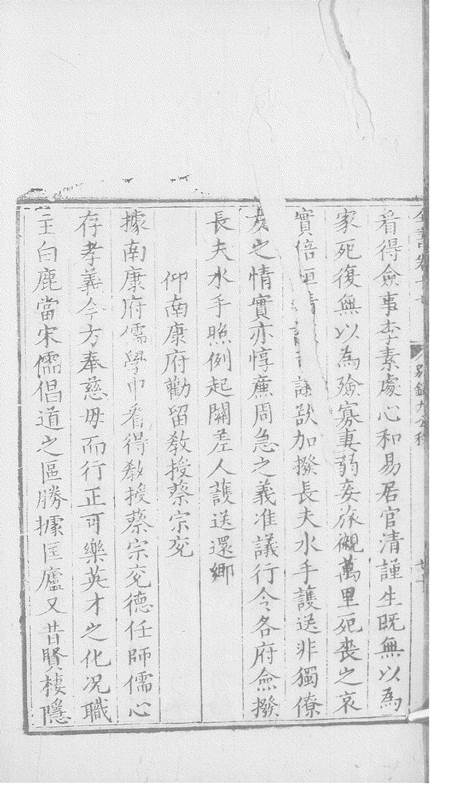 看得僉事李素處心和易居官清謹生既無以為
家死復無以為殮寡妻弱妾旅櫬萬里死喪之哀
實倍恒情 該司議欲加撥長夫水手護送非獨僚
友之情實亦惇薦周急之義准議行令各府僉撥
長夫水手照例起關差人護送還鄉
仰南康府勸留教授蔡宗兗
據南康府儒學申看得教授蔡宗兗德任師儒心
存孝義今方奉慈母而行正可樂英才之化況職
主白鹿當宋儒倡道之區勝據匡廬又昔賢棲隱